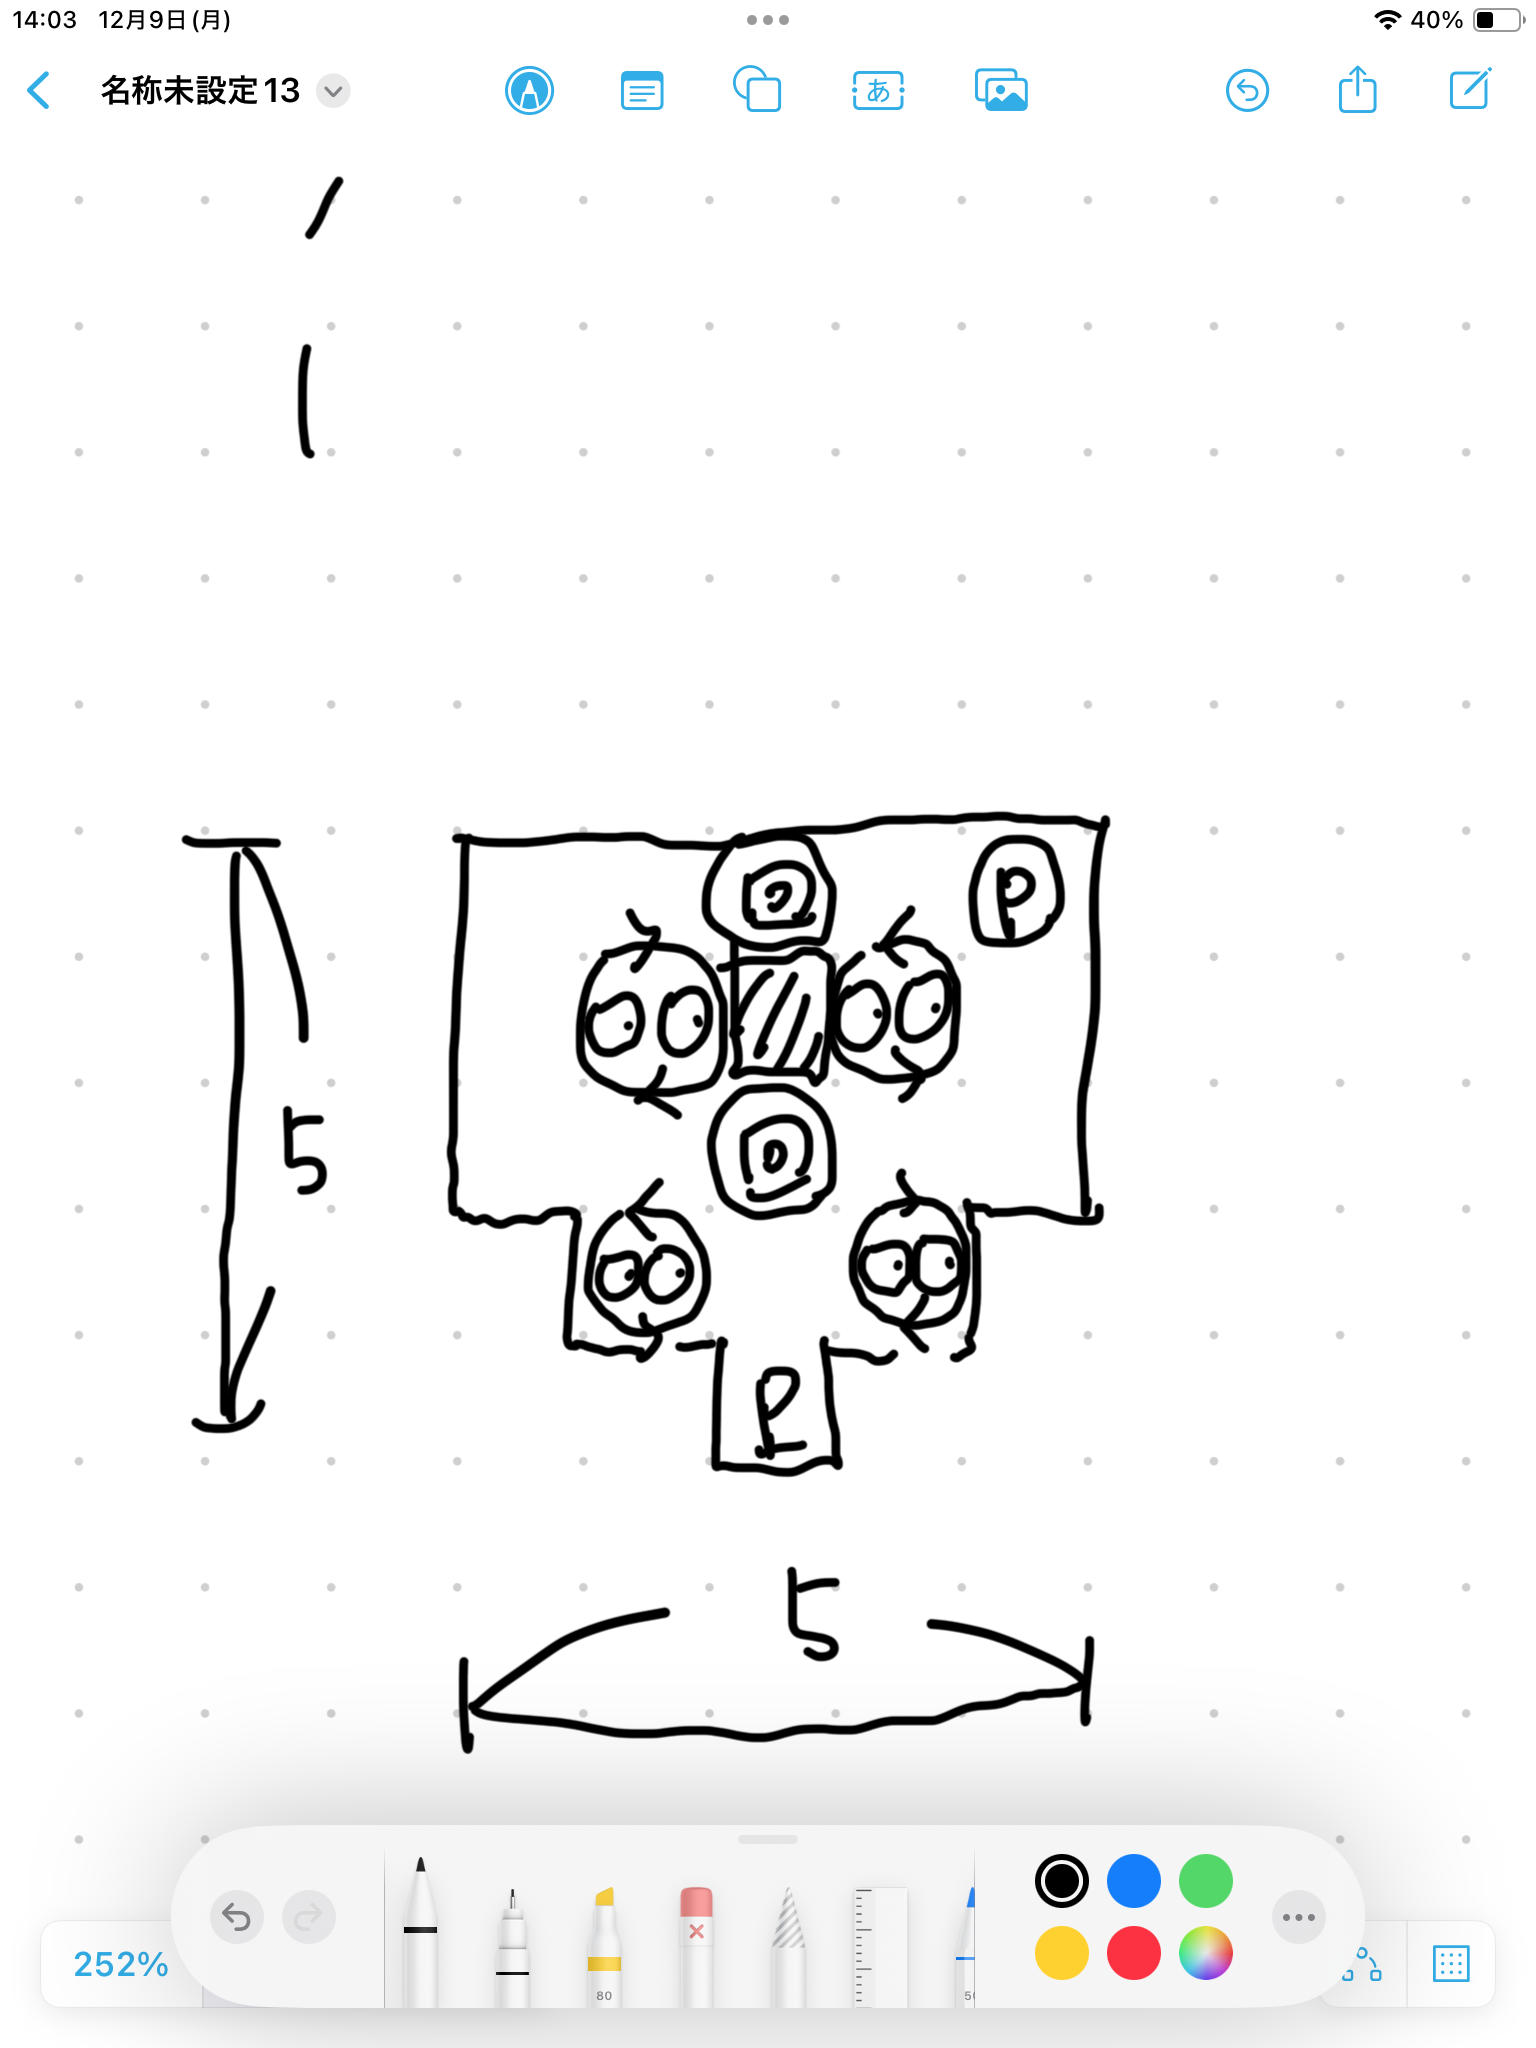 14:03 12月9日(月)
40%
名称未設定 13
あ
P
5
P
5
252%
80
50